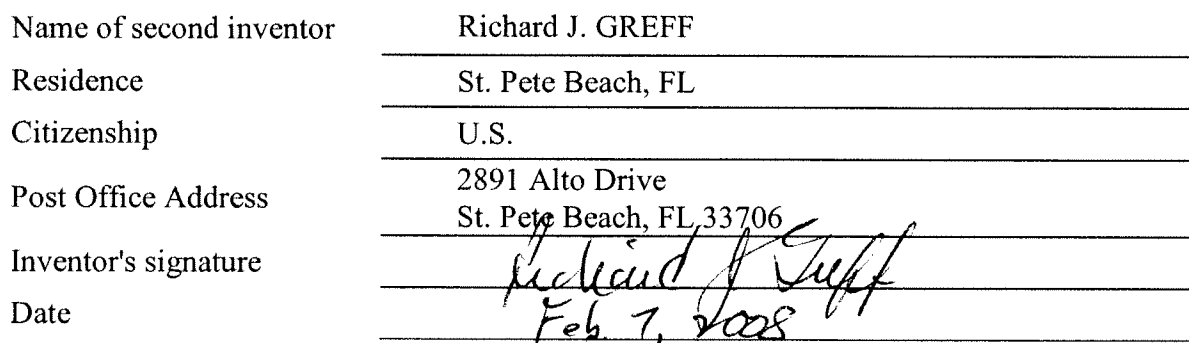 Name of second inventor Richard J. GREFF
Residence St. Pete Beach, FL
Citizenship U.S.
Post Office Address 2891 Alto Drive
St. Pete Beach, FL 33706
Inventor's signature Richard J Greff
Date Feb. 7, 2008